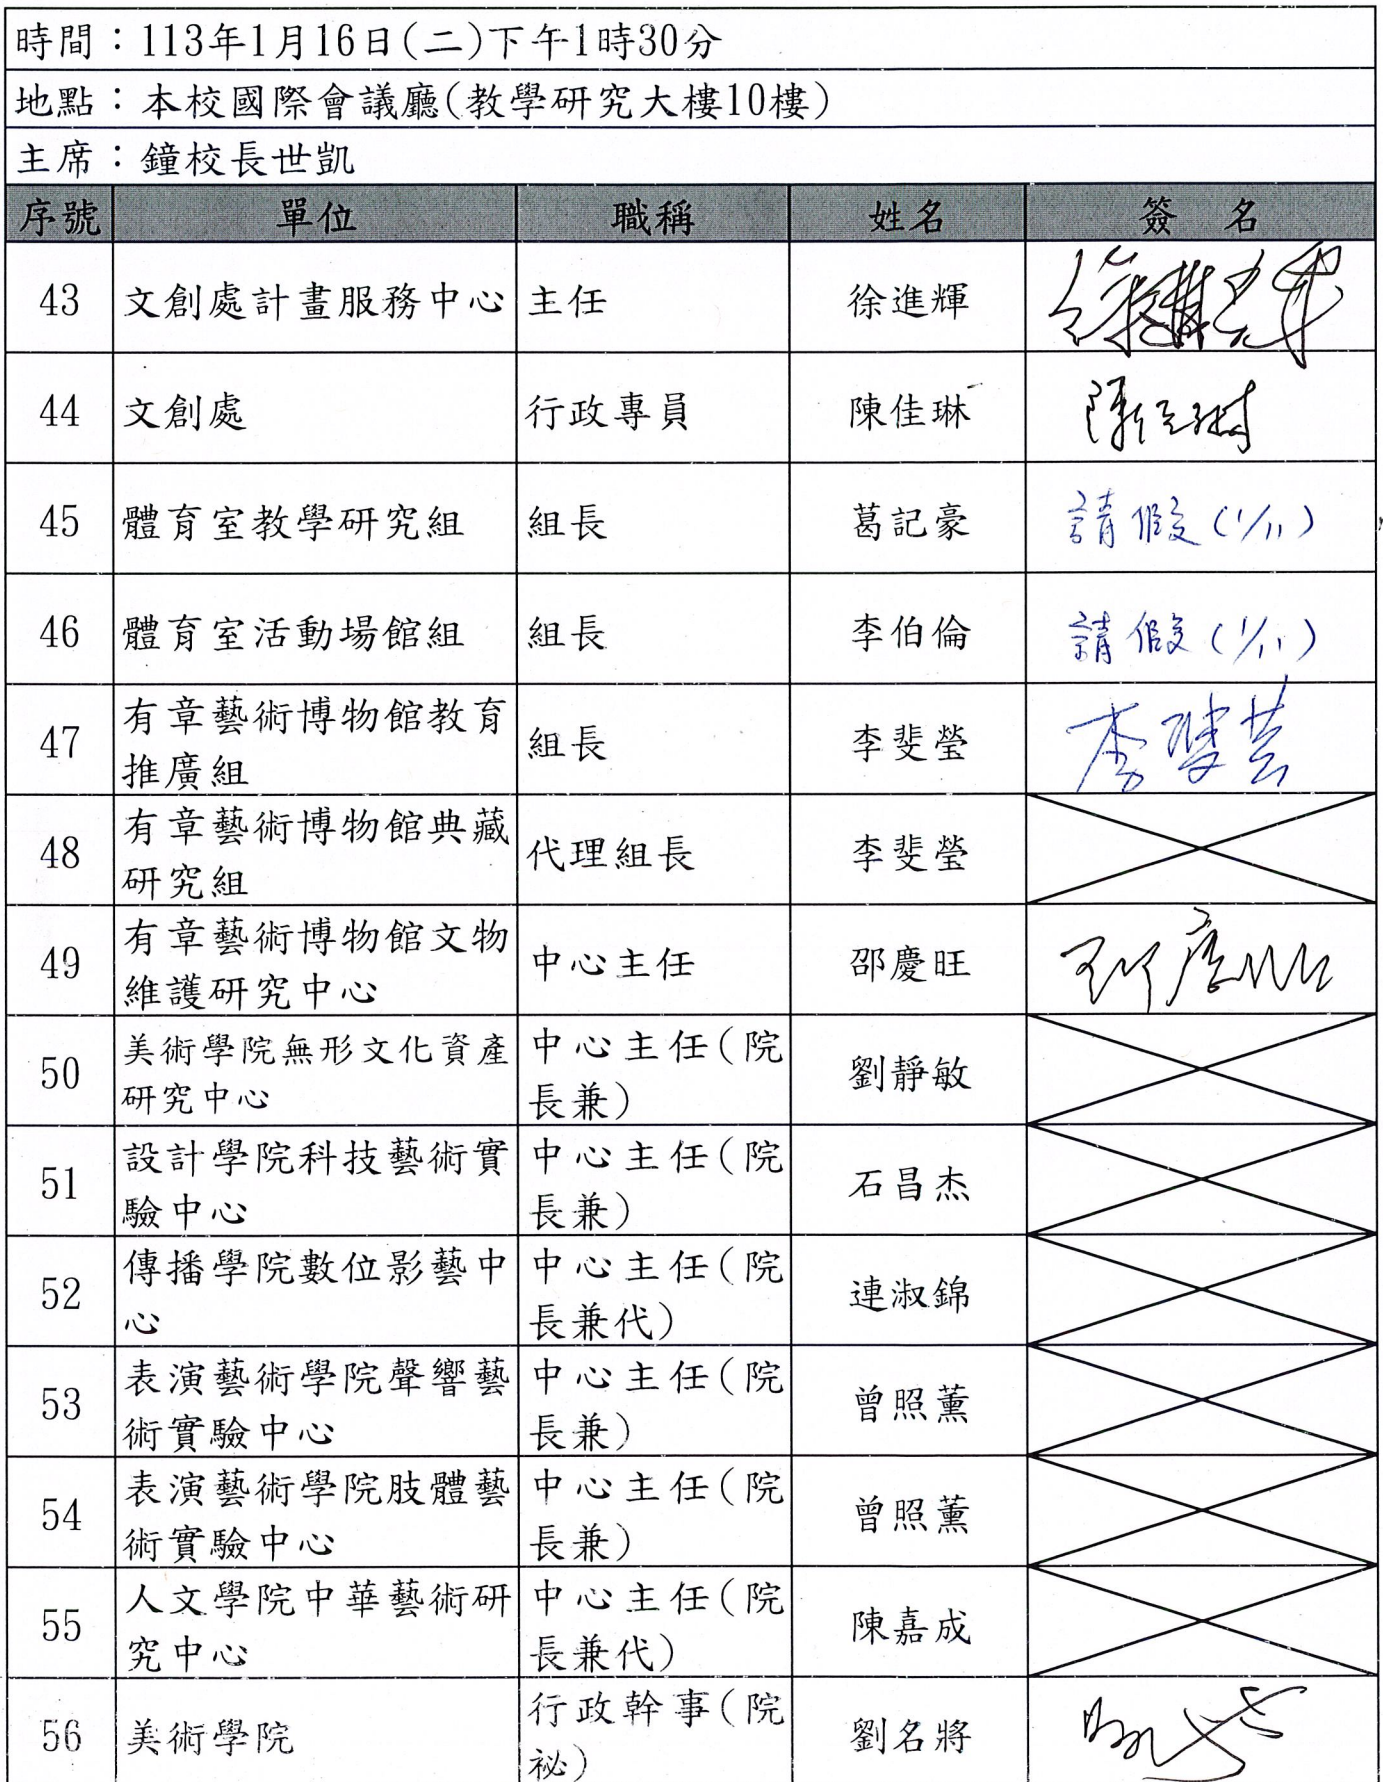 時間：113年1月16日(二)下午1時30分
地點：本校國際會議廳(教學研究大樓10樓)
主席：鐘校長世凱
序號 單位 職稱 姓名 簽 名
43 文創處計畫服務中心 主任 徐進輝
44 文創處 行政專員 陳佳琳 陳佳琳
45 體育室教學研究組 組長 葛記豪 請假(1/11)
46 體育室活動場館組 組長 李伯倫 請假(1/11)
47 有章藝術博物館教育
推廣組 組長 李斐瑩
48 有章藝術博物館典藏
研究組 代理組長 李斐瑩
49 有章藝術博物館文物
維護研究中心 中心主任 邵慶旺
50 美術學院無形文化資產 中心主任(院
研究中心 長兼) 劉靜敏
51 設計學院科技藝術實 中心主任(院
驗中心 長兼) 石昌杰
52 傳播學院數位影藝中 中心主任(院
心 長兼代) 連淑錦
53 表演藝術學院聲響藝 中心主任(院
術實驗中心 長兼) 曾照薰
54 表演藝術學院肢體藝 中心主任(院
術實驗中心 長兼) 曾照薰
55 人文學院中華藝術研 中心主任(院
究中心 長兼代) 陳嘉成
56 美術學院 行政幹事(院
祕) 劉名將